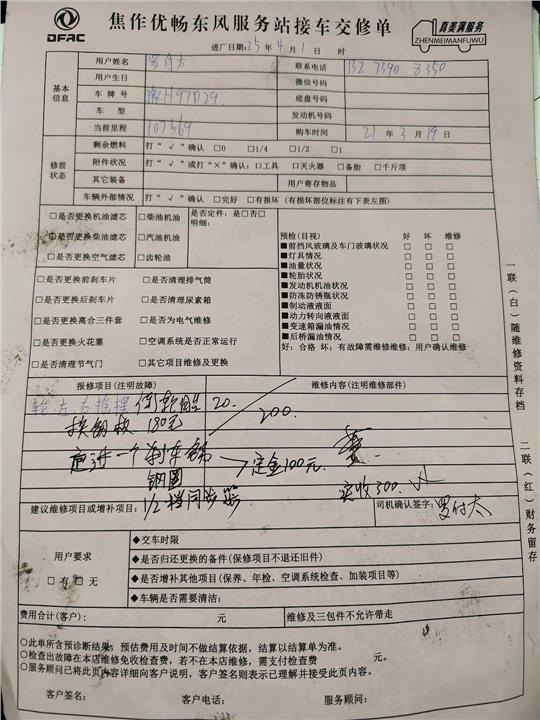 DFAC
焦作优畅东风服务站接车交修单
真美满服务
ZHENMEIMANFUWU
进厂日期:25年4月1日 时
基本信息
用户姓名 罗付太 联系电话 132 7390 8350
用户生日 微信号码
车牌号 豫H97D29 底盘号码
车型 发动机号码
当前里程 107569 购车时间 21年3月19日
修前状态
剩余燃料 打“√”确认 □0 □1/4 □1/2 □1
附件状况 打“√”或打“×”确认:□工具 □灭火器 □备胎 □千斤顶
其它装备 用户寄存物品
车辆外部情况 打“√”确认 □完好 □有损坏(有损坏部位标注有下表左图)
□是否更换机油滤芯 □柴油机油 是否定件:是□否□
明细:
□是否更换柴油滤芯 □汽油机油
□是否更换空气滤芯 □齿轮油
□是否更换前刹车片 □是否清理排气筒
□是否更换后刹车片 □是否清理尿素箱
□是否更换离合三件套 □是否为电气维修
□是否更换火花塞 □空调系统是否正常运行
□是否清理节气门 □其它项目维修及更换
预检(目视) 好 坏 维修
■前挡风玻璃及车门玻璃状况 □ □ □
■灯具情况 □ □ □
■油量状况 □ □ □
■轮胎状况 □ □ □
■发动机机油状况 □ □ □
■防冻防锈瓶状况 □ □ □
■制动液液面 □ □ □
■动力转向液液面 □ □ □
■变速箱漏油情况 □ □ □
■后桥漏油情况 □ □ □
好:合格 坏:有故障需维修维修:用户确认维修
报修项目(注明故障) 维修内容(注明维修部件)
轮左右摇摆 20.
换钢板 180元 200.
一个刹车锅
钢圈 定金100元.
1/2档同步器 实收300.
建议维修项目或增补项目: 司机确认签字:罗付太
用户要求
□有 □无
◆交车时限
◆是否归还更换的备件(保修项目不退还旧件)
◆是否增补其他项目(保养、年检、空调系统检查、加装项目等)
◆车辆是否需要清洁:
费用合计(客户): 元 维修及三包件不允许带走
○此单所含预诊断结果:预估费用及时间不做结算依据,结算以结算单为准。
○检查出故障在本店维修免收检查费,若不在本店维修,需支付检查费 元。
○服务顾问已将此页内容详细向客户说明,客户签名则表示已理解并接受此页内容。
客户签名: 客户电话: 服务顾问:
一联(白)随维修资料存档
二联(红)财务留存